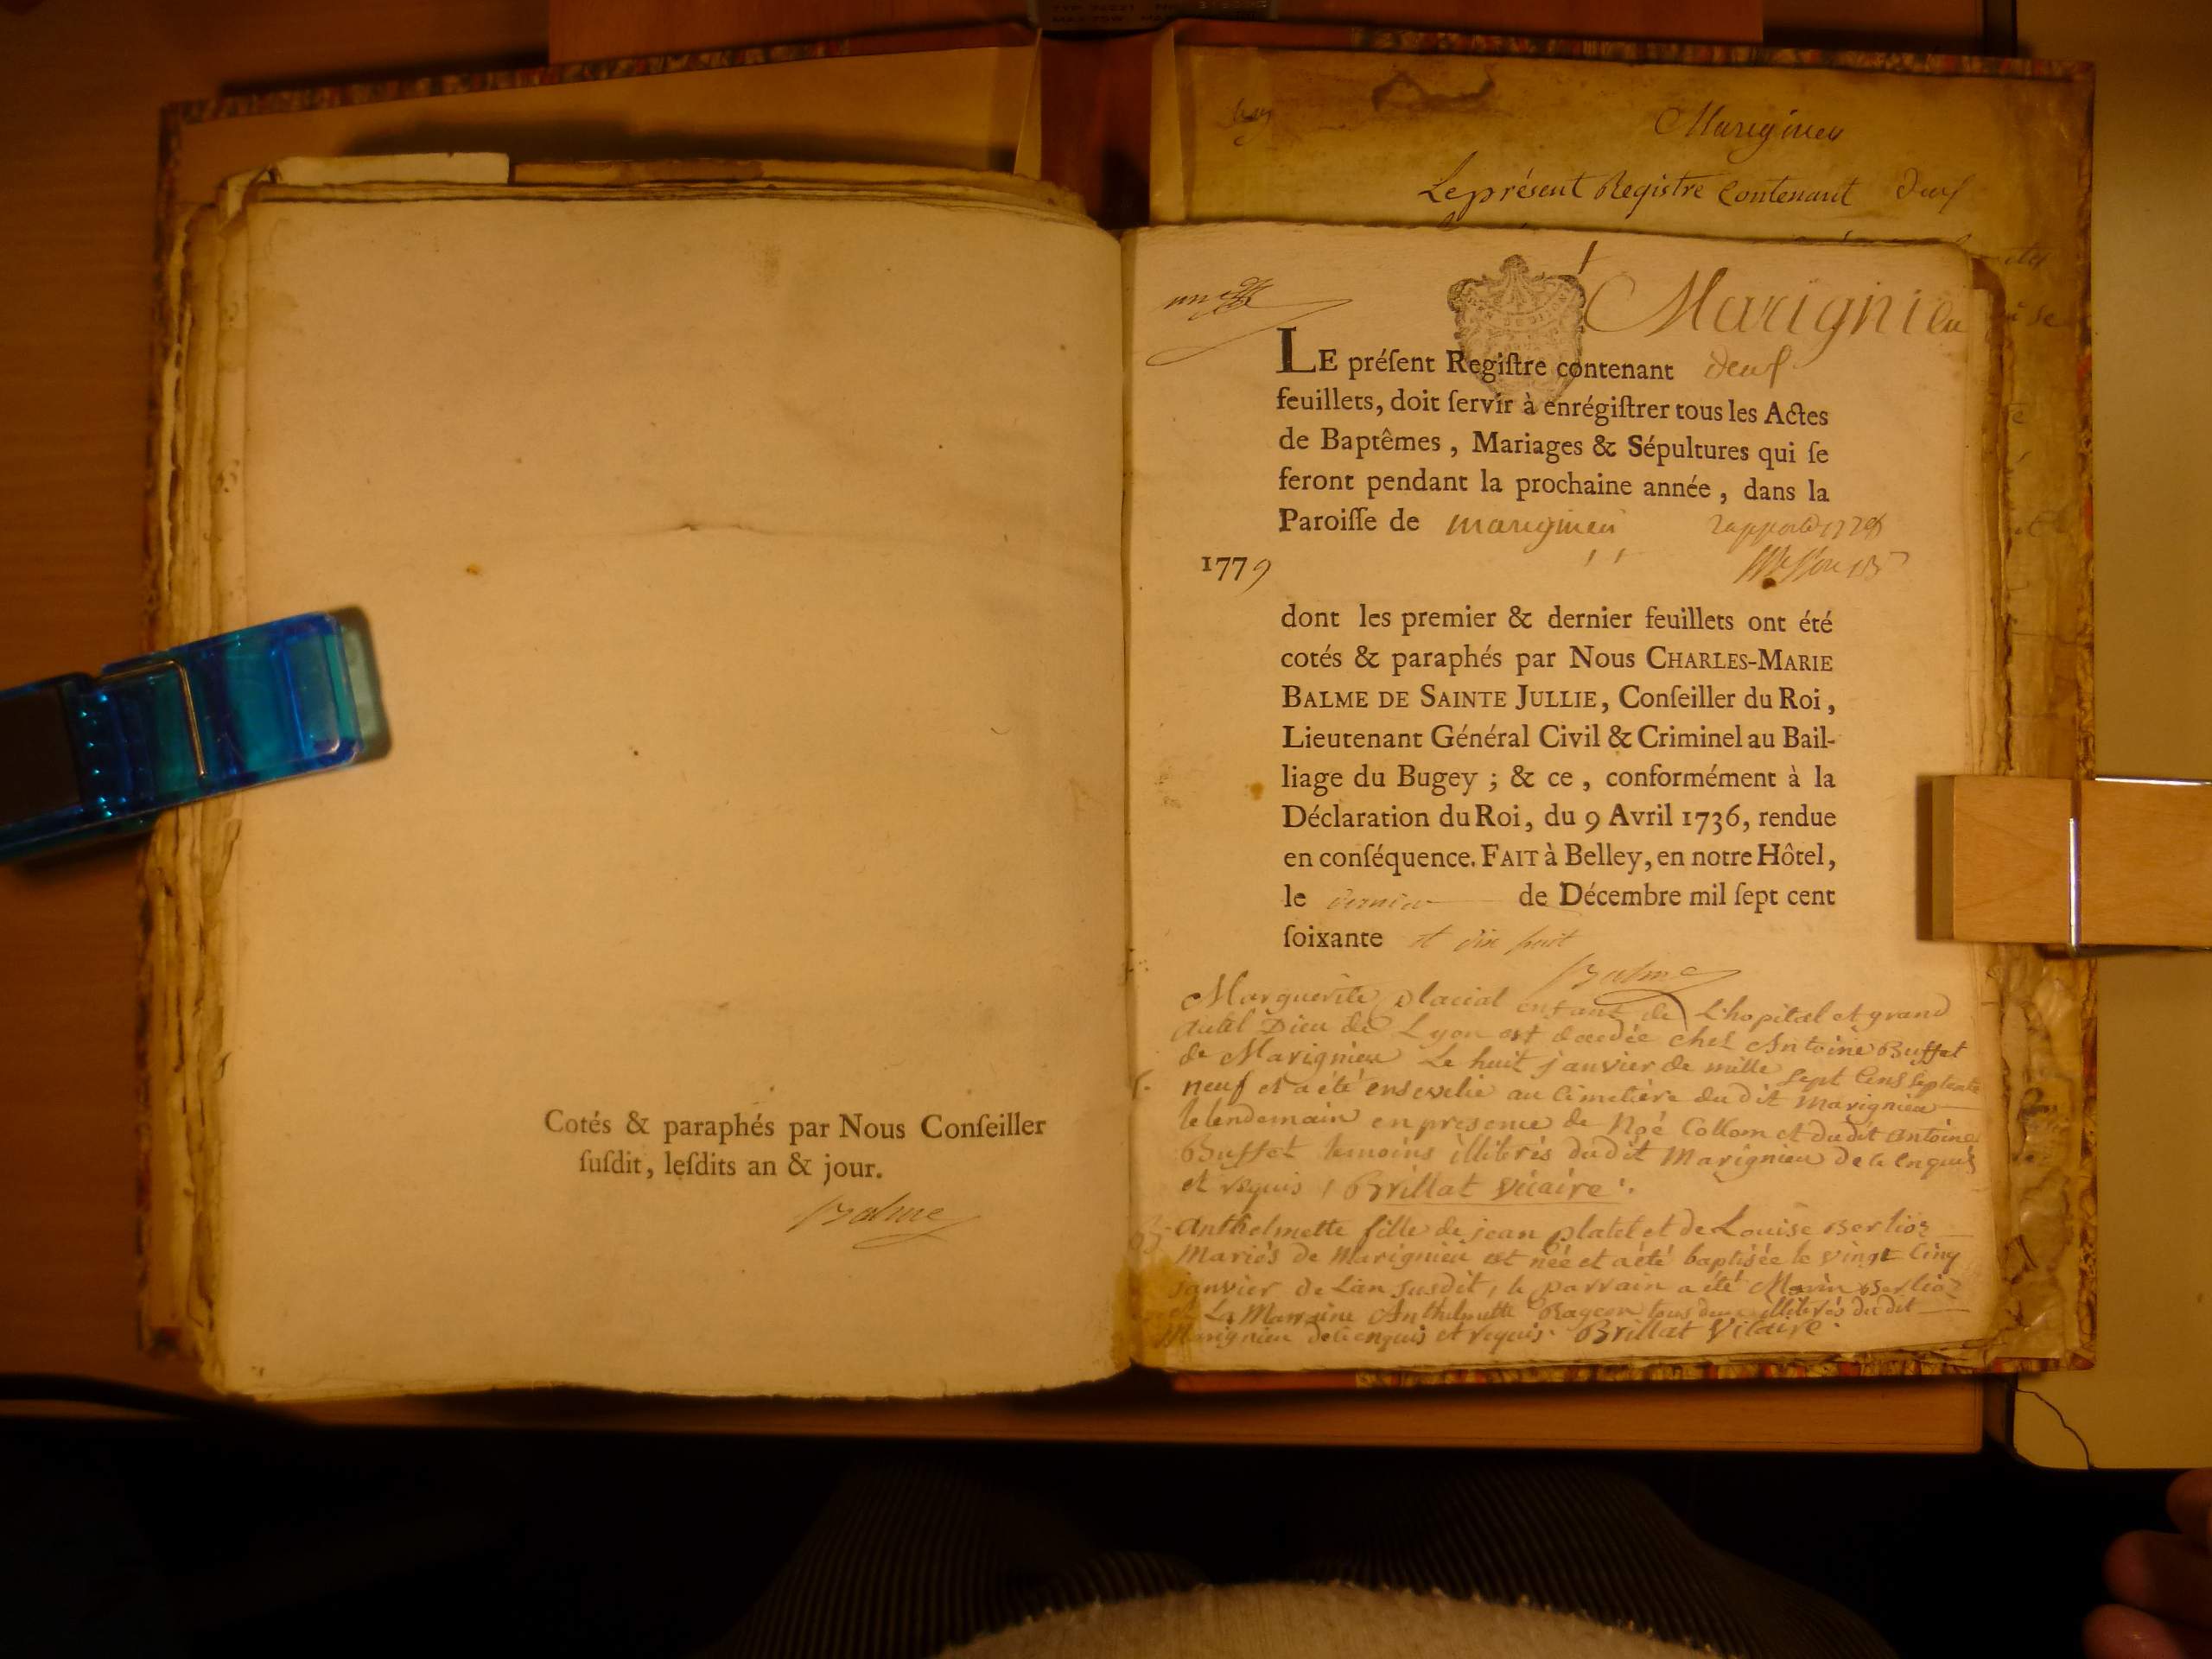 Cotés & paraphés par Nous Conſeiller
ſuſdit, leſdits an & jour.
Balme
Marignieu
Le présent Registre Contenant Deux
Marignieu
LE préſent Regiſtre contenant deux
feuillets, doit ſervir à enrégiſtrer tous les Actes
de Baptêmes, Mariages & Sépultures qui ſe
feront pendant la prochaine année, dans la
Paroiſſe de marignieu
1779
dont les premier & dernier feuillets ont été
cotés & paraphés par Nous CHARLES-MARIE
BALME DE SAINTE JULLIE, Conſeiller du Roi,
Lieutenant Général Civil & Criminel au Bail-
liage du Bugey ; & ce, conformément à la
Déclaration du Roi, du 9 Avril 1736, rendue
en conſéquence. FAIT à Belley, en notre Hôtel,
le dernier de Décembre mil ſept cent
ſoixante et dix huit
Balme
Marguerite placial enfant de L'hopital et grand
autel Dieu de Lyon est decedée chès Antoine Buffet
de Marignieu Le huit janvier de mille sept Cens septante
neuf et a été ensevelie au Cimetière du dit Marignieu
le lendemain en presence de Noé Collom et du dit Antoine
Buffet temoins illiterés du dit Marignieu de ce enquis
et requis / Brillat Vicaire.
B. Anthelmette fille de jean platel et de Louise Berlioz
Mariés de Marignieu est née et a été baptisée le vingt Cinq
janvier de Lan susdit, le parrain a été Marin Berlioz
et La Marraine Anthelmette Rageon tous deux illiterés du dit
Marignieu de ce enquis et requis. Brillat Vicaire.